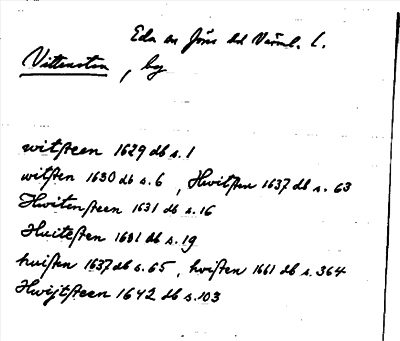 Eda sn Jösse hd Värml. l.
Vittensten, by
witsteen 1629 db s. 1
witsten 1630 db s. 6, Hwitsten 1637 db s. 63
Hwitensteen 1631 db s. 16
Huitesten 1631 db s. 19
huisten 1637 db s. 65, hvisten 1661 db s. 364
Hwijtsteen 1642 db s. 103